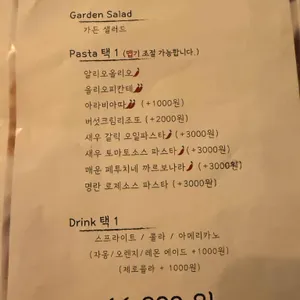 Garden Salad
가든 샐러드
Pasta 택 1 (맵기 조절 가능합니다.)
알리오올리오
올리오피칸테
아라비아따 (+1000원)
버섯크림리조또 (+2000원)
새우 갈릭 오일파스타 (+3000원)
새우 토마토소스 파스타 (+3000원)
매운 페투치네 까르보나라 (+3000원)
명란 로제소스 파스타 (+3000원)
Drink 택 1
스프라이트 / 콜라 / 아메리카노
(자몽/오렌지/레몬 에이드 +1000원)
(제로콜라 + 1000원)